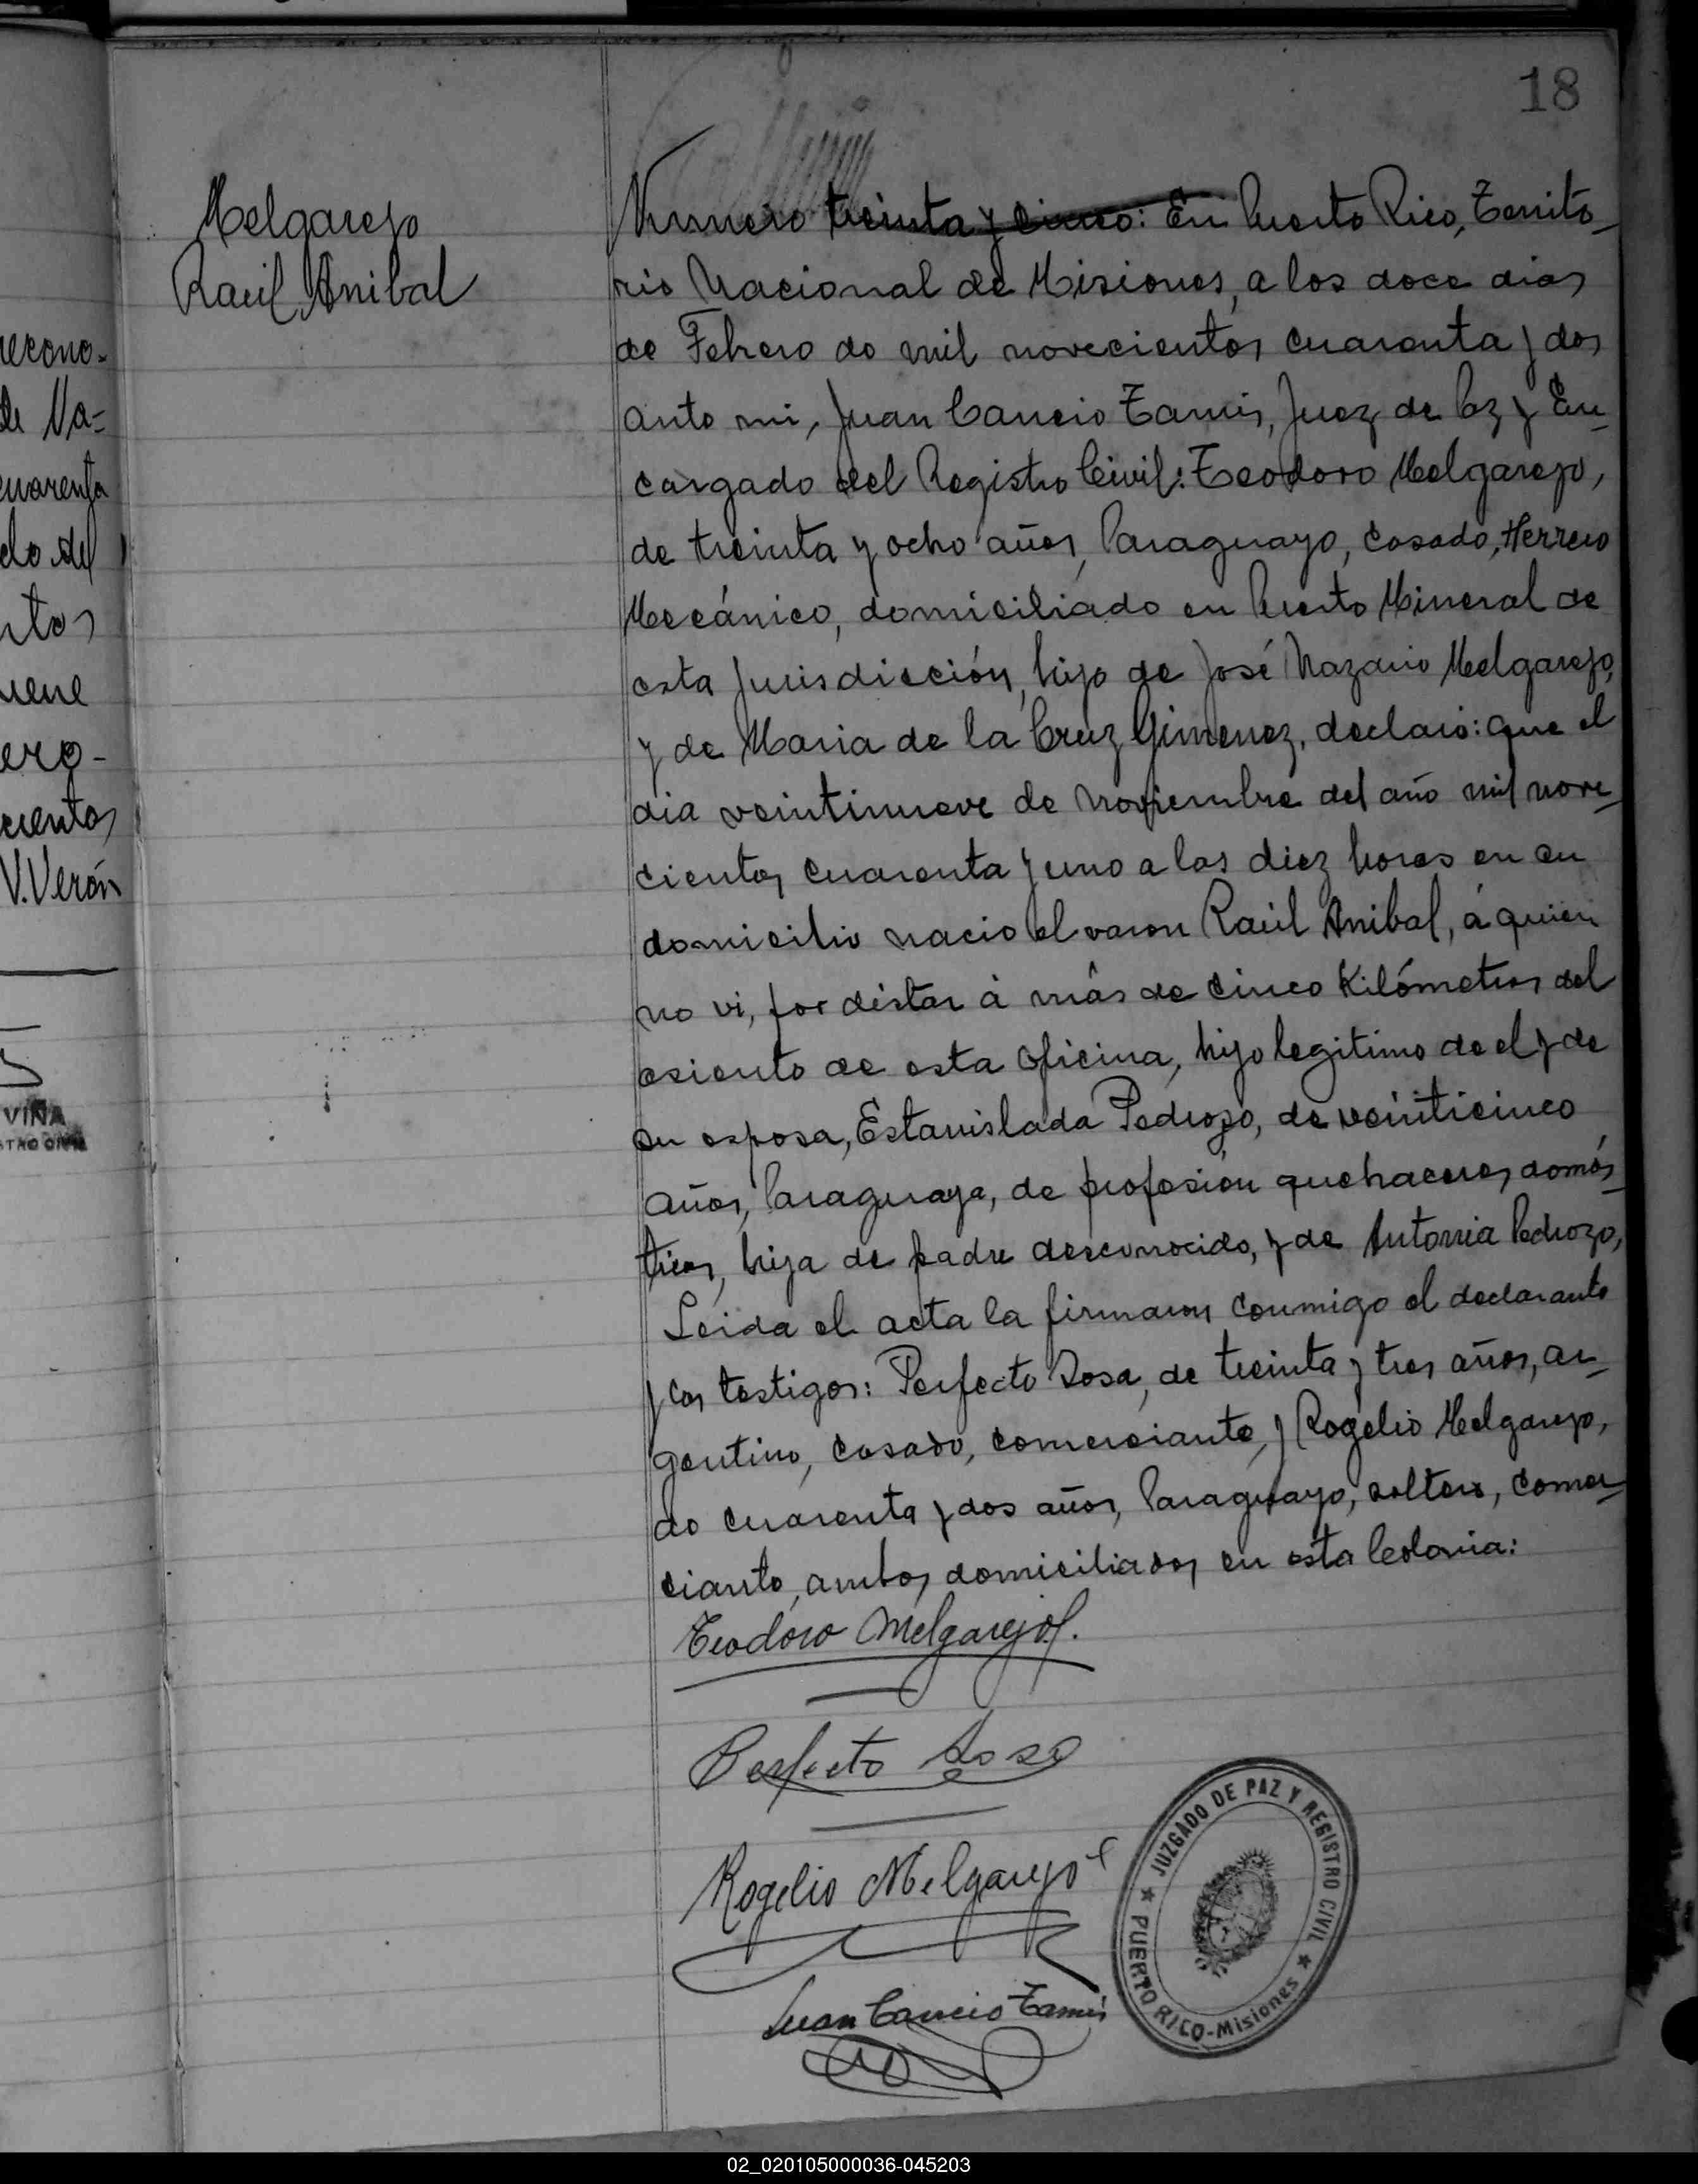 18
Melgarejo
Raúl Anibal
Numero treinta y cinco: En Puerto Rico, Territo-
rio Nacional de Misiones, a los doce dias
de Febrero de mil novecientos cuarenta y dos
ante mi, Juan Cancio Tamis, Juez de Paz y En-
cargado del Registro Civil: Teodoro Melgarejo,
de treinta y ocho años, Paraguayo, casado, Herrero
Mecánico, domiciliado en Puerto Mineral de
esta Jurisdicción, hijo de José Nazario Melgarejo,
y de Maria de la Cruz Gimenez, declaró: que el
dia veintinueve de noviembre del año mil nove-
cientos cuarenta y uno a las diez horas en su
domicilio nacio el varon Raúl Anibal, á quien
no vi, por distar á más de cinco Kilómetros del
asiento de esta oficina, hijo legitimo de el y de
su esposa, Estanislada Pedrozo, de veinticinco
años, Paraguaya, de profesión quehaceres domés-
ticos, hija de padre desconocido, y de Antonia Pedrozo,
Leida el acta la firmaron conmigo el declarante
y los testigos: Perfecto Sosa, de treinta y tres años, ar-
gentino, casado, comerciante, y Rogelio Melgarejo,
de cuarenta y dos años, Paraguayo, soltero, comer-
ciante, ambos domiciliados en esta Colonia:
Teodoro Melgarejo
Perfecto Sosa
Rogelio Melgarejo
Juan Cancio Tamis
JUZGADO DE PAZ Y REGISTRO CIVIL
PUERTO RICO-Misiones
recono-
de Na-
cuarenta
do del
ntos
ero-
cientos
V. Verón
VIÑA
02_020105000036-045203